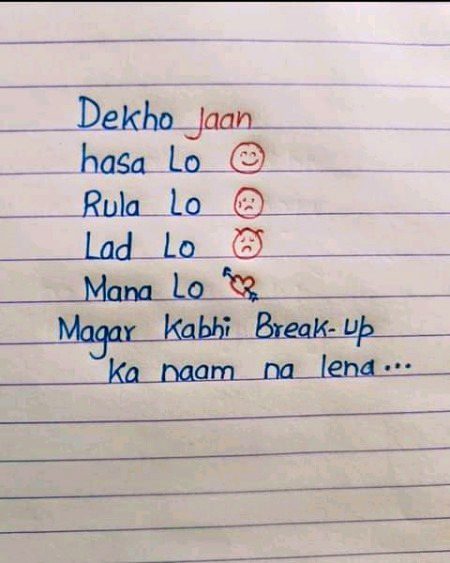 Dekho Jaan
hasa Lo
Rula Lo
Lad Lo
Mana Lo
Magar Kabhi Break-up
Ka naam na lena...